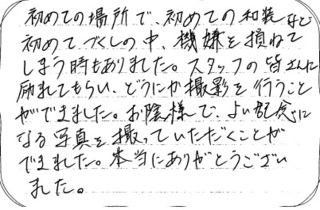 初めての場所で、初めての和装など
初めてづくしの中、機嫌を損ねて
しまう時もありました。スタッフの皆さんに
励ましてもらい、どうにか撮影を行うこと
ができました。お陰様で、よい記念に
なる写真を撮っていただくことが
できました。本当にありがとうござい
ました。